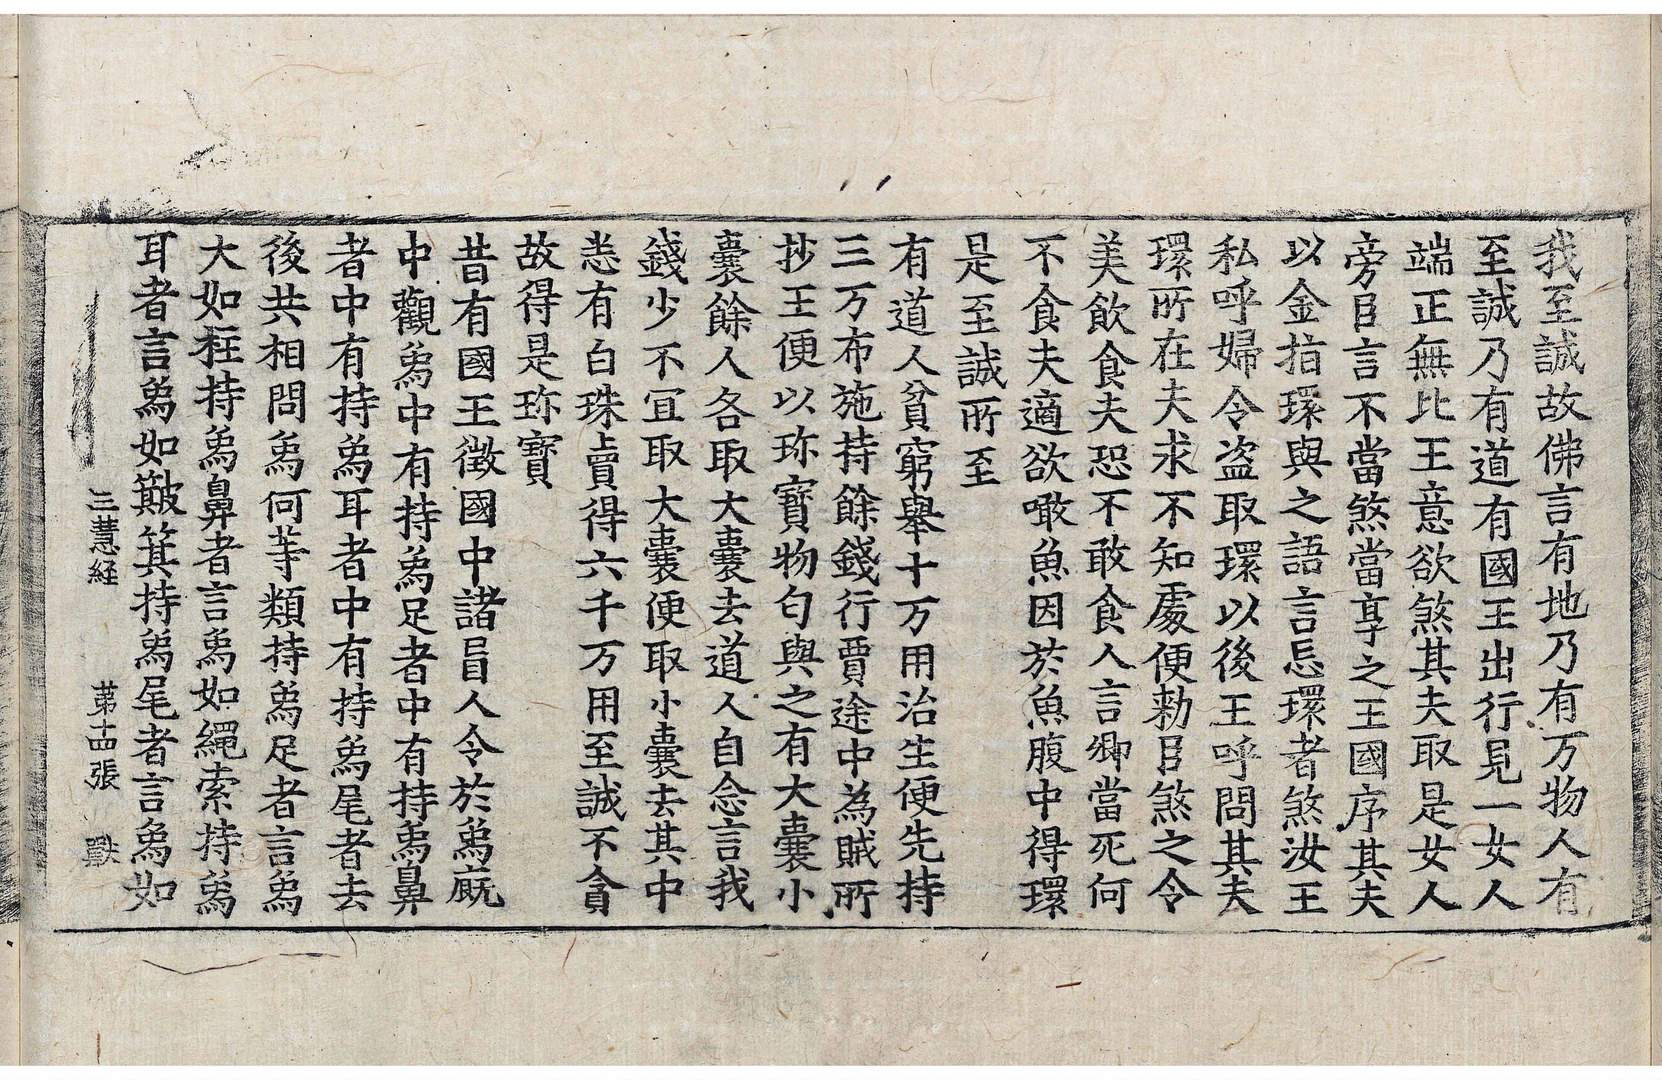 我至誠故佛言有地乃有万物人有
至誠乃有道有國王出行見一女人
端正無比王意欲煞其夫取是女人
旁臣言不當煞當享之王國序其夫
以金指環與之語言忘環者煞汝王
私呼婦令盗取環以後王呼問其夫
環所在夫求不知處便勑臣煞之令
美飲食夫恐不敢食人言卿當死何
不食夫適欲噉魚因於魚腹中得環
是至誠所至
有道人貧窮舉十万用治生便先持
三万布施持餘錢行賈途中為賊所
抄王便以珎寳物匄與之有大囊小
囊餘人各取大囊去道人自念言我
錢少不宜取大囊便取小囊去其中
悉有白珠賣得六千万用至誠不貪
故得是珎寳
昔有國王徴國中諸盲人令於爲厩
中觀爲中有持爲足者中有持爲鼻
者中有持爲耳者中有持爲尾者去
後共相問爲何等類持爲足者言爲
大如柱持爲鼻者言爲如繩索持爲
耳者言爲如簸箕持爲尾者言爲如
三慧経 第十四張 戰